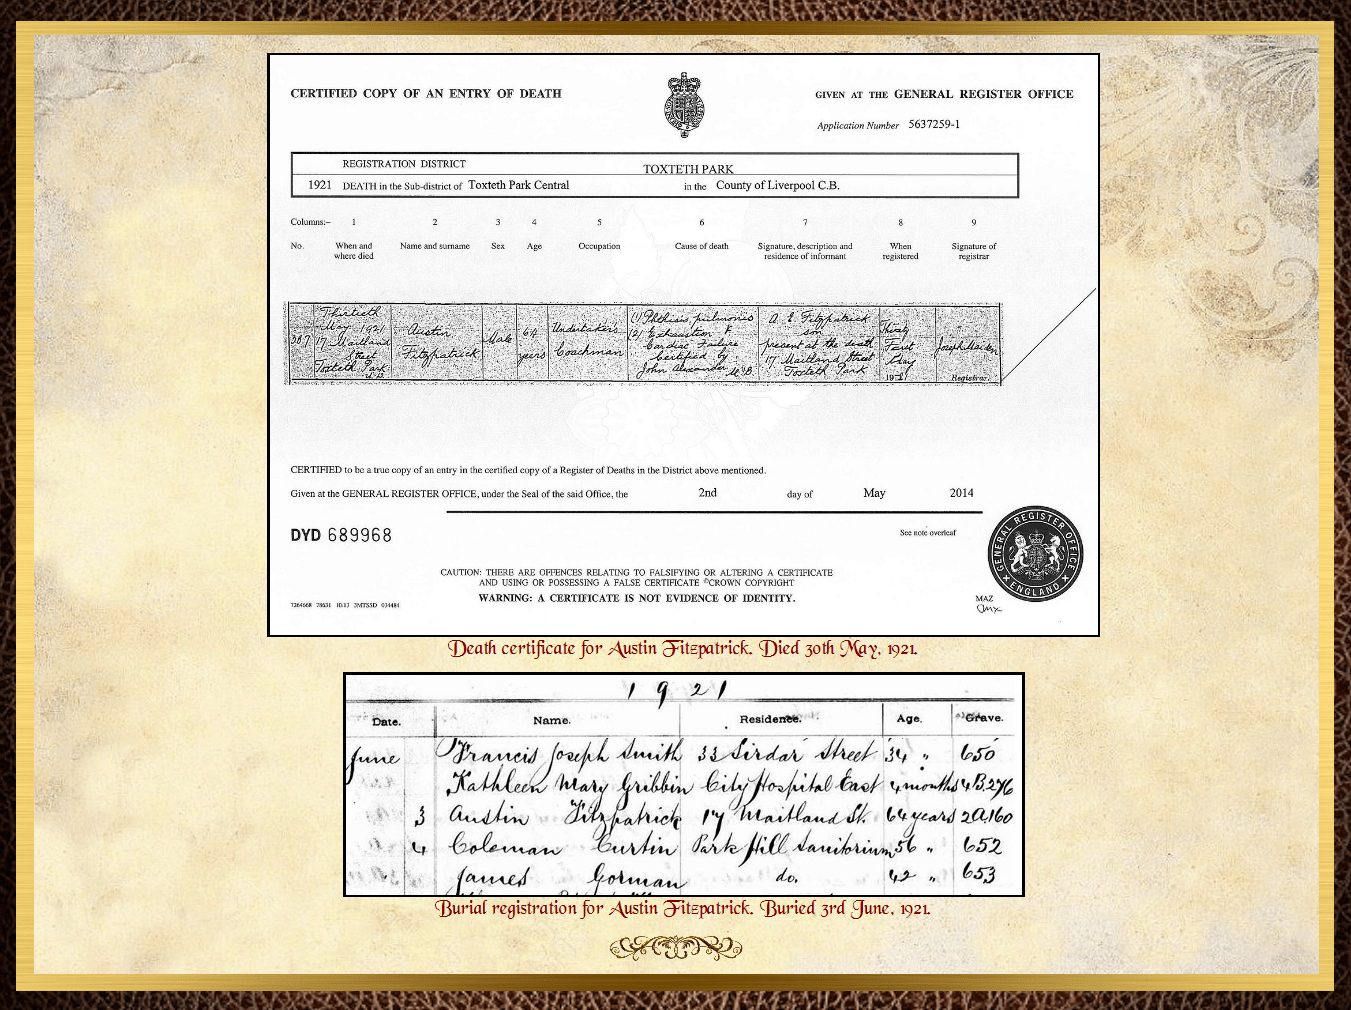 CERTIFIED COPY OF AN ENTRY OF DEATH
GIVEN AT THE GENERAL REGISTER OFFICE
Application Number 5637259-1
REGISTRATION DISTRICT TOXTETH PARK
1921 DEATH in the Sub-district of Toxteth Park Central in the County of Liverpool C.B.
Columns:- 1 2 3 4 5 6 7 8 9
No. When and where died Name and surname Sex Age Occupation Cause of death Signature, description and residence of informant When registered Signature of registrar
307
Thirtieth
May 1921
17 Maitland
Street
Toxteth Park
Austin
Fitzpatrick
Male
64
years
Undertakers
Coachman
(1) Phthisis pulmonis
(2) Exhaustion &
Cardiac Failure
Certified by
John Alexander MB
A. E. Fitzpatrick
son
present at the death
17 Maitland Street
Toxteth Park
Thirty
First
May
1921
Joseph
Registrar.
CERTIFIED to be a true copy of an entry in the certified copy of a Register of Deaths in the District above mentioned.
Given at the GENERAL REGISTER OFFICE, under the Seal of the said Office, the 2nd day of May 2014
DYD 689968
See note overleaf
GENERAL REGISTER OFFICE
ENGLAND
CAUTION: THERE ARE OFFENCES RELATING TO FALSIFYING OR ALTERING A CERTIFICATE
AND USING OR POSSESSING A FALSE CERTIFICATE ©CROWN COPYRIGHT
WARNING: A CERTIFICATE IS NOT EVIDENCE OF IDENTITY.
MAZ
Death certificate for Austin Fitzpatrick. Died 30th May, 1921.
1921
Date. Name. Residence. Age. Grave.
June Francis Joseph Smith 33 Sirdar Street 34 " 650
Kathleen Mary Gribbin City Hospital East 4 months 4B.276
3 Austin Fitzpatrick 17 Maitland St. 64 years 2A.160
4 Coleman Curtin Park Hill Sanitorium 56 " 652
James Gorman do. 42 " 653
Burial registration for Austin Fitzpatrick. Buried 3rd June, 1921.